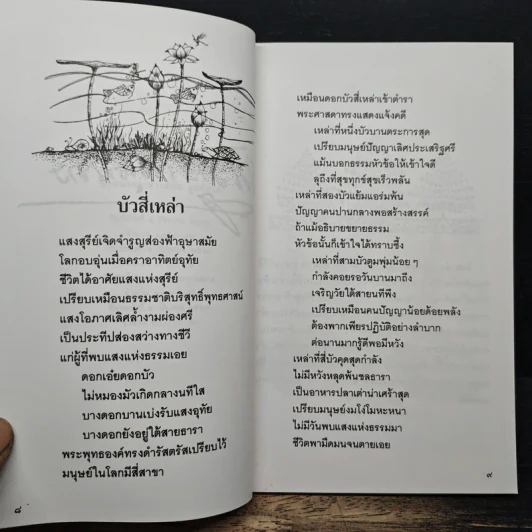 บัวสี่เหล่า
แสงสุรีย์เจิดจำรูญส่องฟ้าอุษาสมัย
โลกอบอุ่นเมื่อคราอาทิตย์อุทัย
ชีวิตได้อาศัยแสงแห่งสุรีย์
เปรียบเหมือนธรรมชาติบริสุทธิ์พุทธศาสน์
แสงโอภาศเลิศล้ำงามผ่องศรี
เป็นประทีปส่องสว่างทางชีวี
แก่ผู้ที่พบแสงแห่งธรรมเอย
ดอกเอ๋ยดอกบัว
ไม่หมองมัวเกิดกลางนทีใส
บางดอกบานเบ่งรับแสงอุทัย
บางดอกยังอยู่ใต้สายธารา
พระพุทธองค์ทรงดำรัสตรัสเปรียบไว้
มนุษย์ในโลกมีสี่สาขา
๘
เหมือนดอกบัวสี่เหล่าเข้าตำรา
พระศาสดาทรงแสดงแจ้งคดี
เหล่าที่หนึ่งบัวบานตระการสุด
เปรียบมนุษย์ปัญญาเลิศประเสริฐศรี
แม้นบอกธรรมหัวข้อให้เข้าใจดี
ลุถึงที่สุขทุกข์สุขเร็วพลัน
เหล่าที่สองบัวแย้มแอร่มพ้น
ปัญญาคนปานกลางพอสร้างสรรค์
ถ้าแม้อธิบายขยายธรรม
หัวข้อนั้นก็เข้าใจได้ทราบซึ้ง
เหล่าที่สามบัวตูมพุ่มน้อย ๆ
กำลังคอยรอวันบานมาถึง
เจริญวัยได้สายนทีพึง
เปรียบเหมือนคนปัญญาน้อยด้อยพลัง
ต้องพากเพียรปฏิบัติอย่างลำบาก
ต่อนานมากรู้ดีพอมีหวัง
เหล่าที่สี่บัวคุดสุดกำลัง
ไม่มีหวังหลุดพ้นชลธารา
เป็นอาหารปลาเต่าน่าเศร้าสุด
เปรียบมนุษย์งมโง่โมหะหนา
ไม่มีวันพบแสงแห่งธรรมมา
ชีวิตพามืดมนจนตายเอย
๙